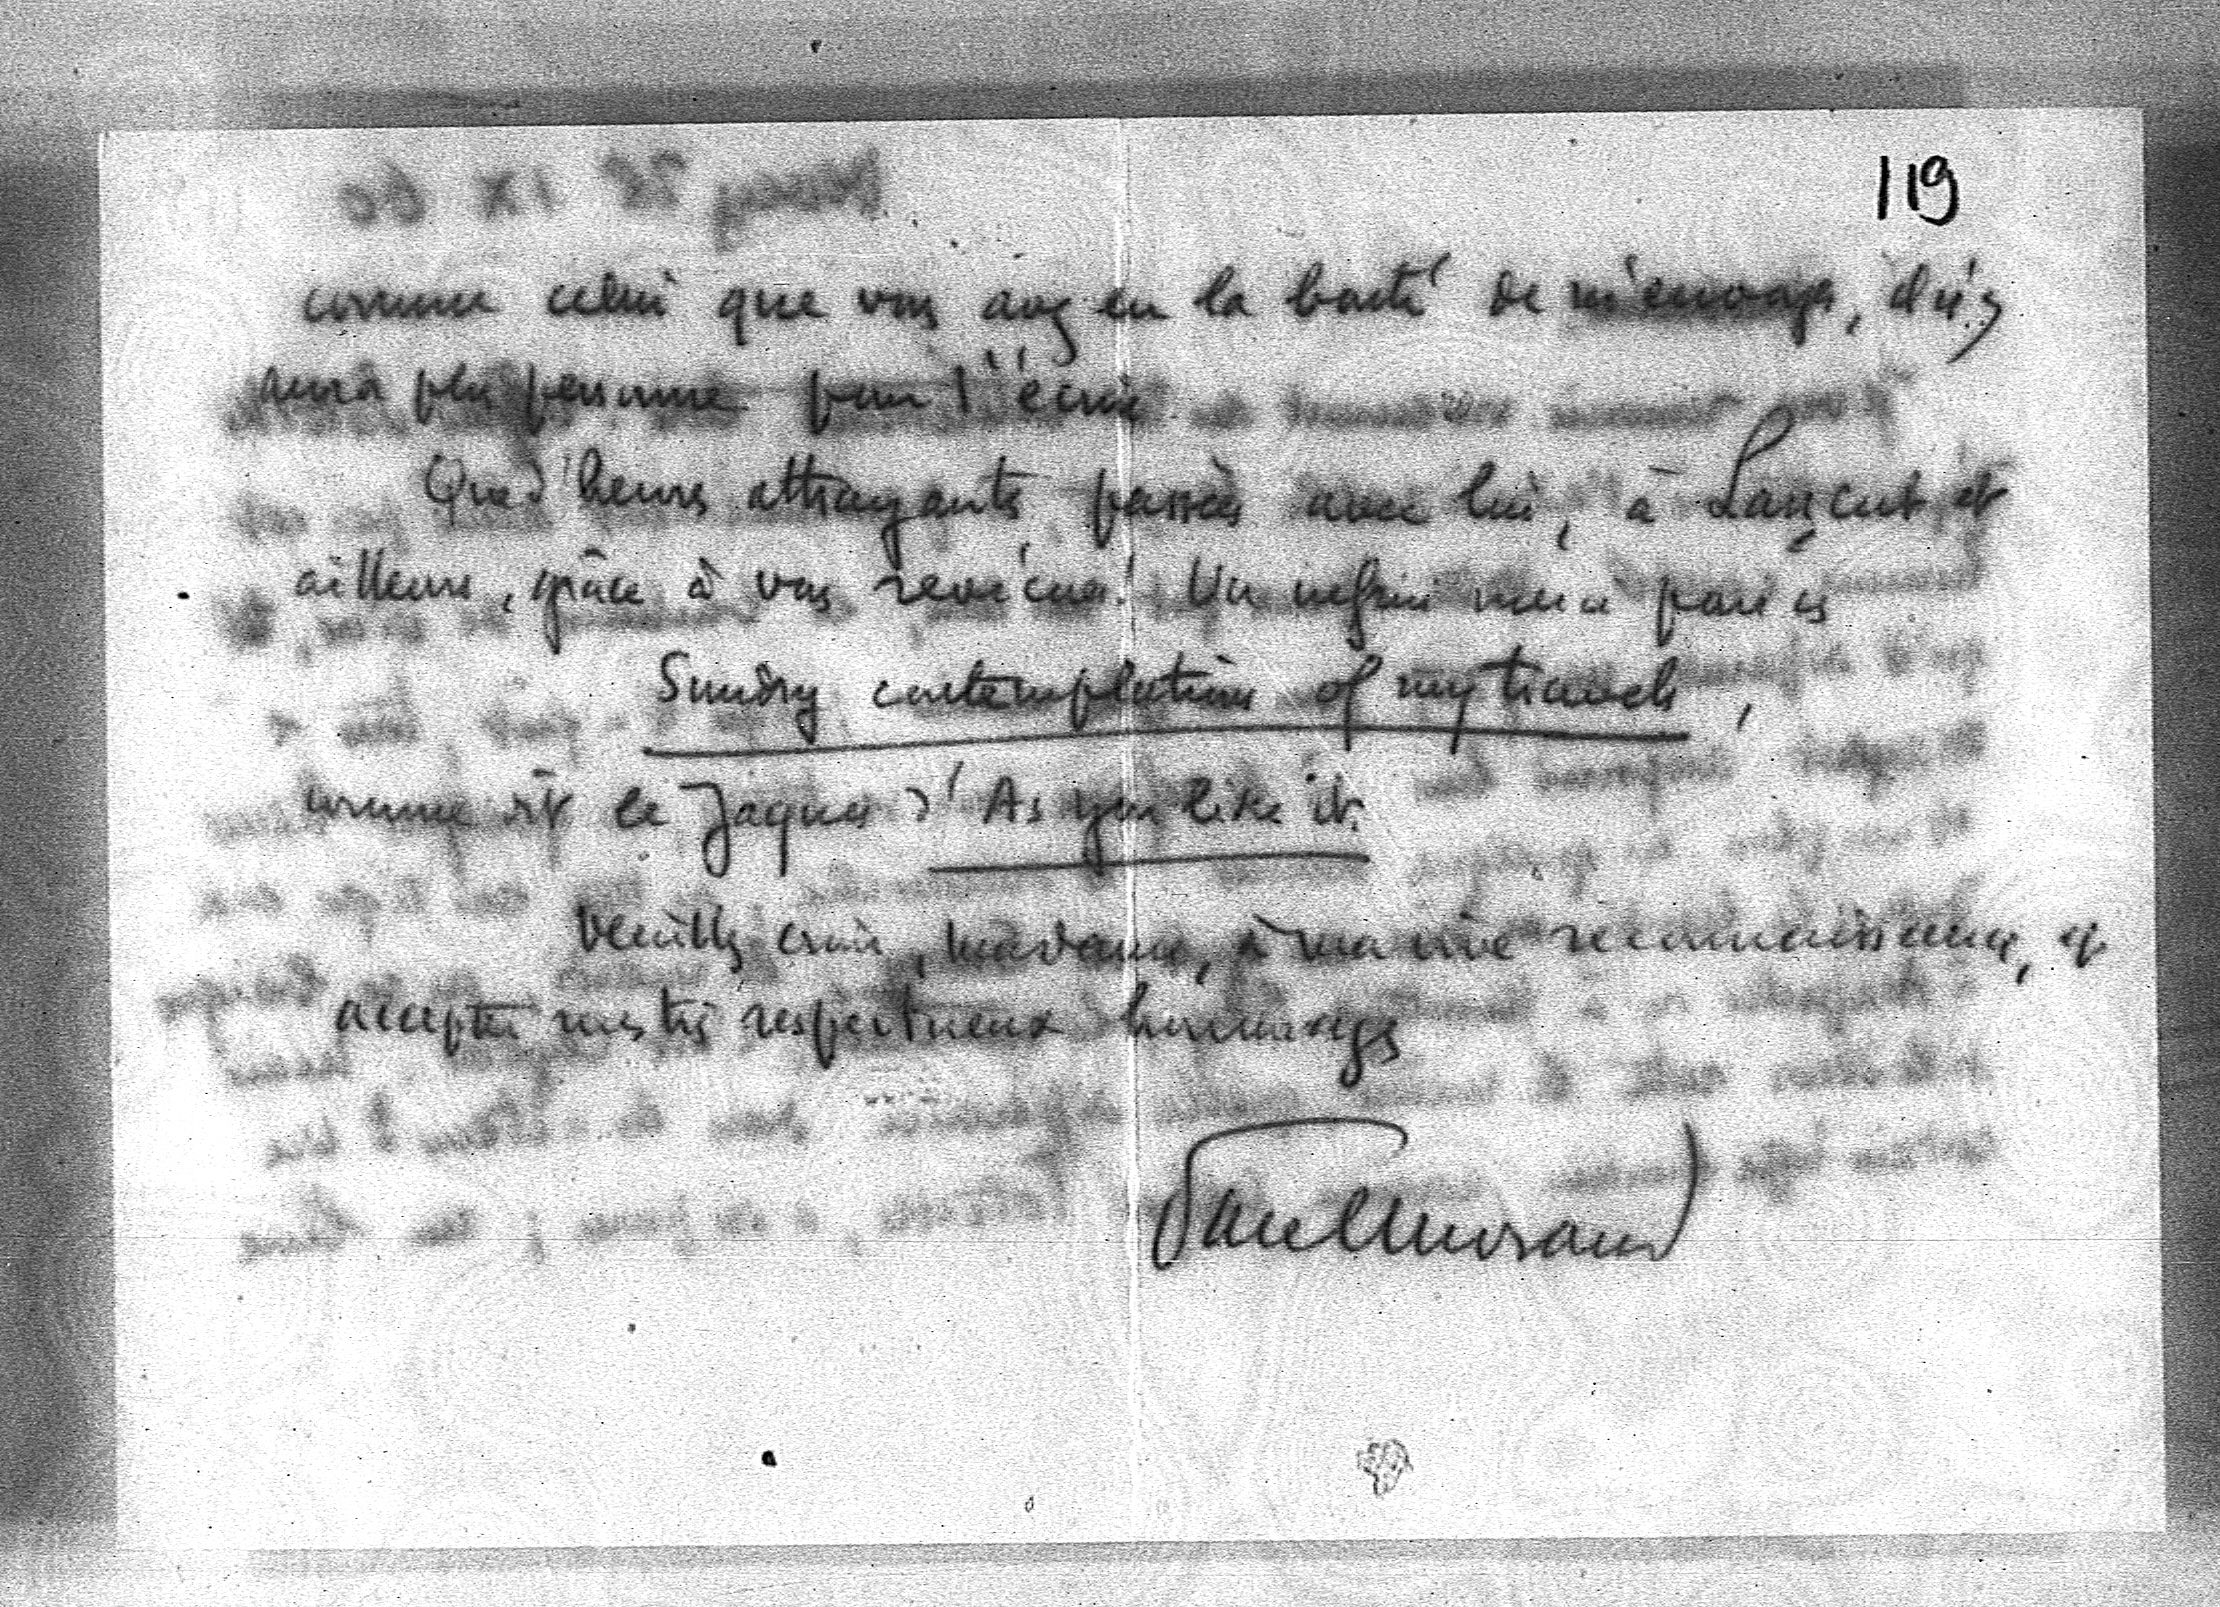 119
comme celui que vous avez eu la bonté de m'envoyer, il n'y
aura plus personne pour l'écrire
Que d'heures attrayantes passées avec lui, à Lançut et
ailleurs, grâce à vous revécues! Un
Sundry contemplations of my travels,
comme dit le Jaques d'As you like it.
Veuillez croire, Madame, à ma vive reconnaissance, et
accepter mes très respectueux hommages
Paul Morand